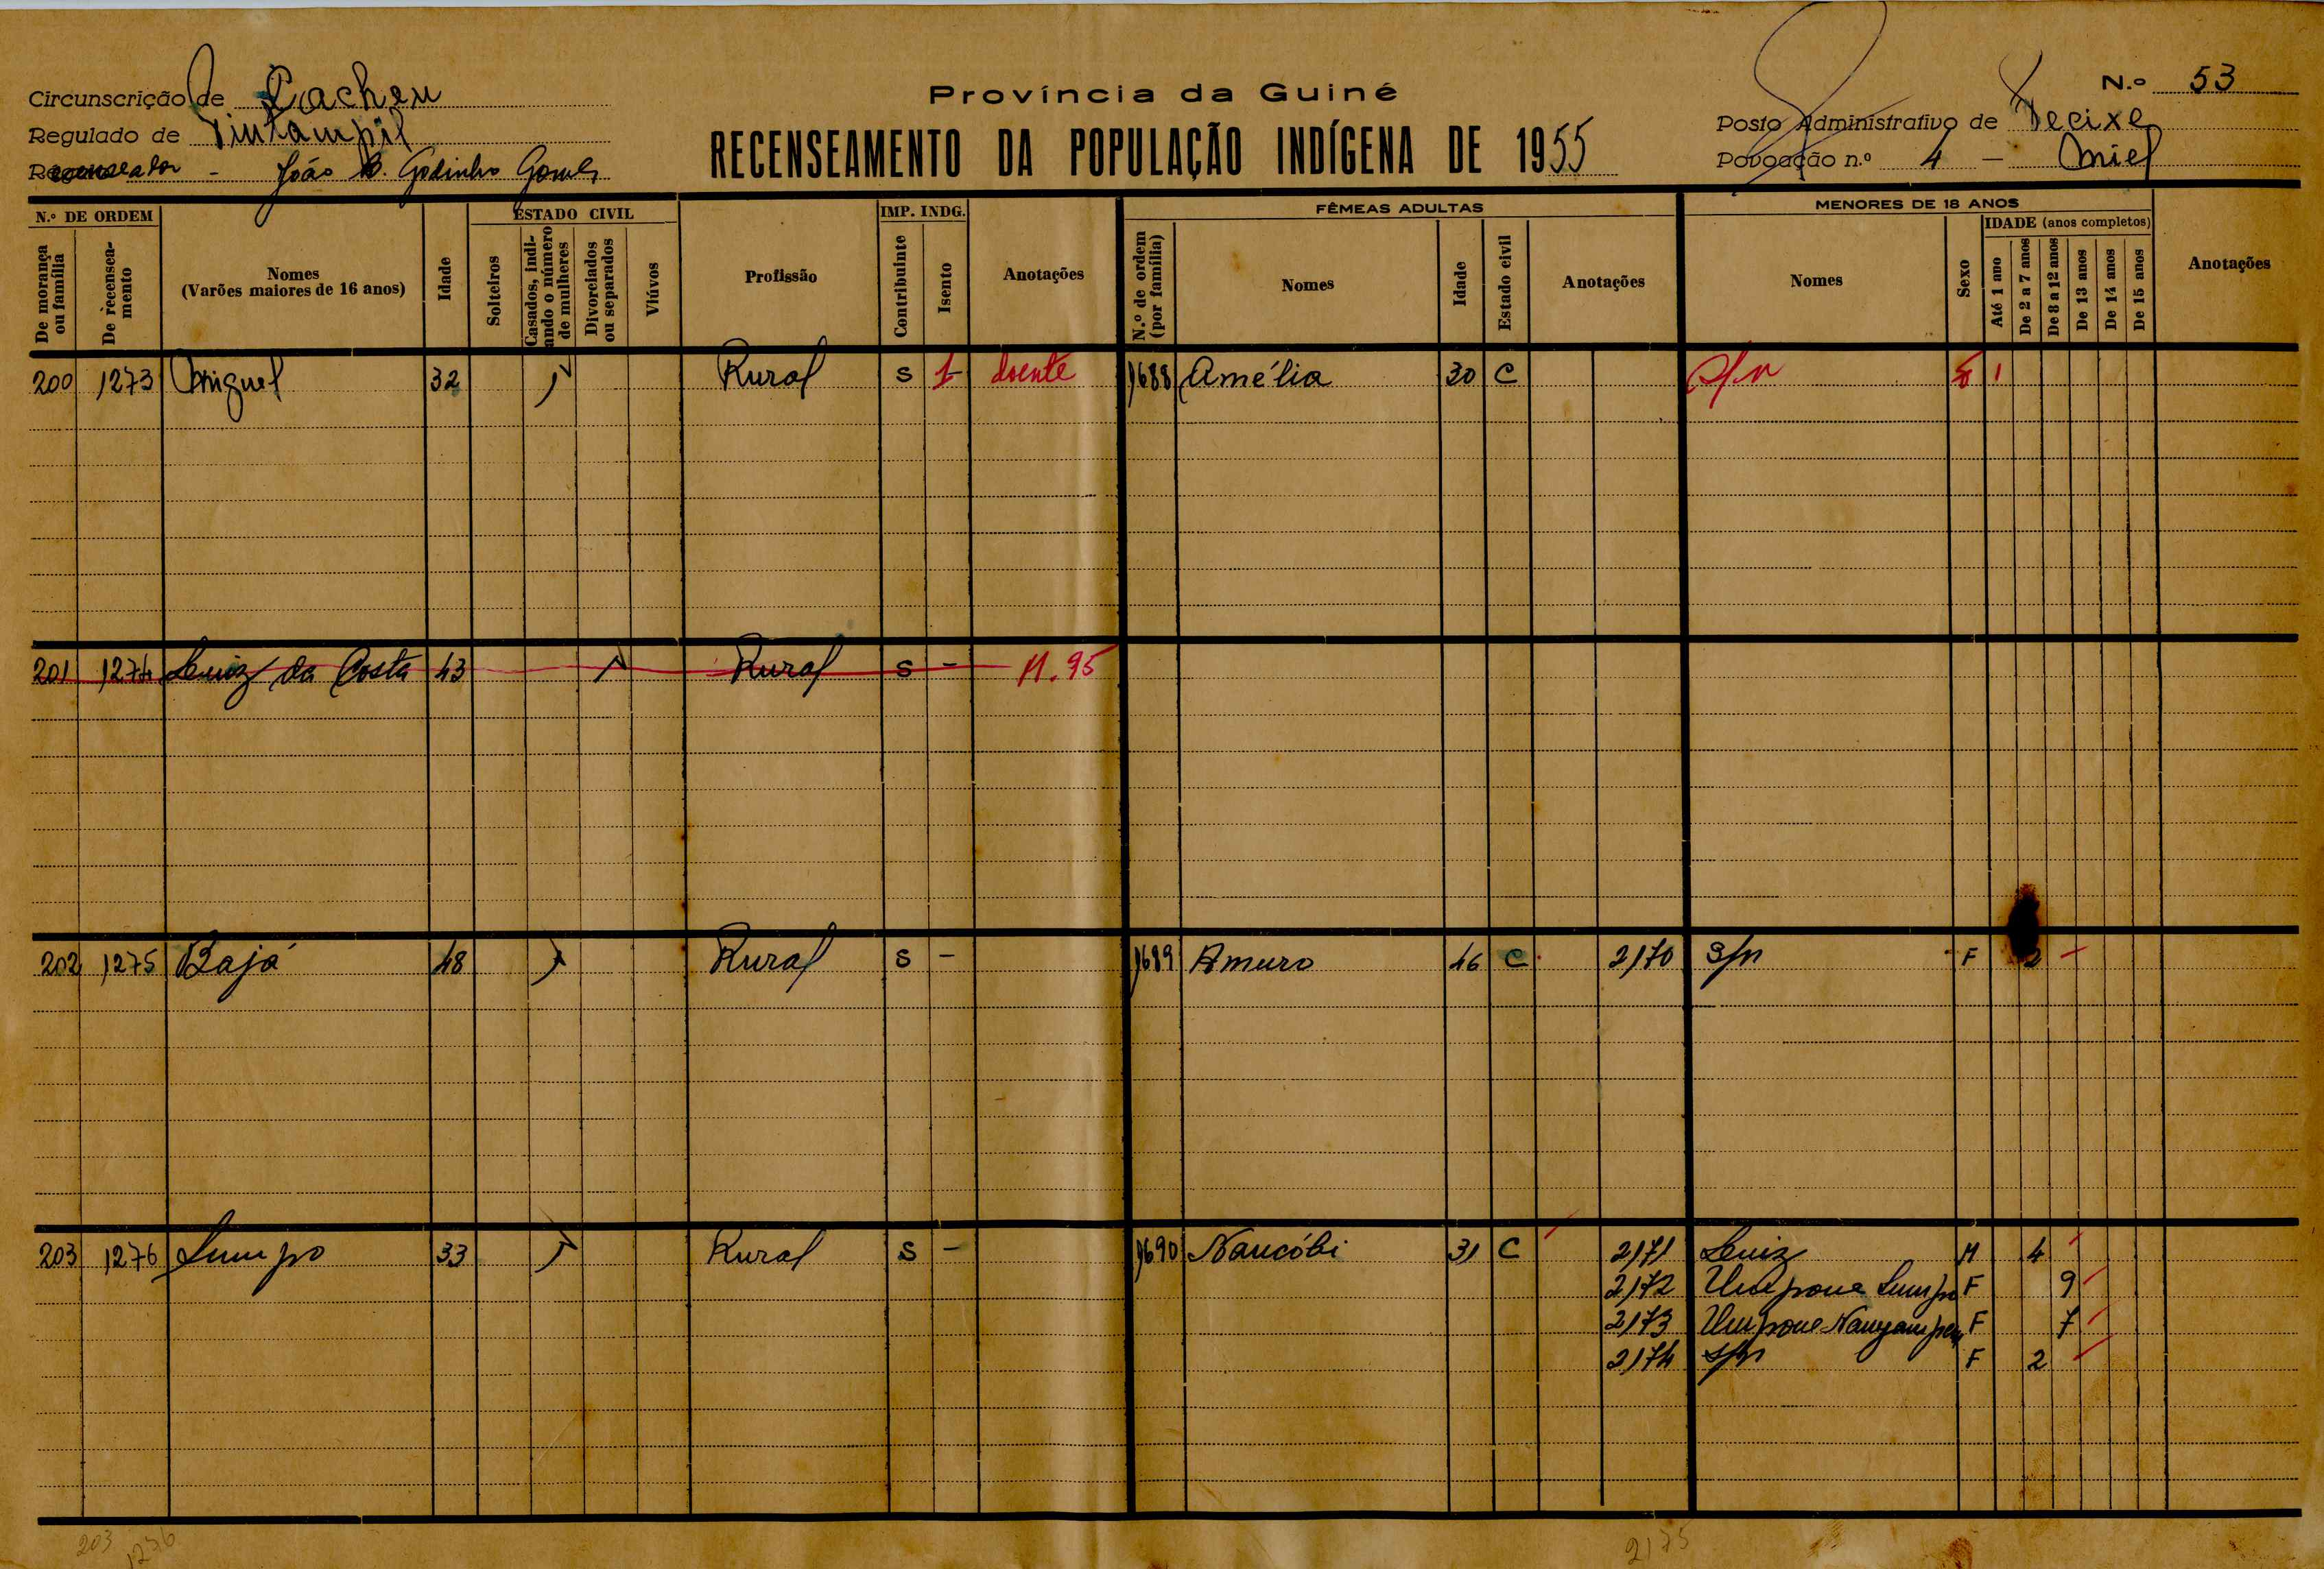 Província da Guiné
N.º 53
Circunscrição de Cacheu
Regulado de
Recenseador - João B. Godinho Gomes
RECENSEAMENTO DA POPULAÇÃO INDÍGENA DE 1955
Posto Administrativo de Tecixe
Povoação n.º 4 -
N.º DE ORDEM
De morança ou família
De recenseamento
Nomes
(Varões maiores de 16 anos)
Idade
ESTADO CIVIL
Solteiros
Casados, indicando o número de mulheres
Divorciados ou separados
Viúvos
Profissão
IMP. INDG.
Contribuinte
Isento
Anotações
FÊMEAS ADULTAS
N.º de ordem (por família)
Nomes
Idade
Estado civil
Anotações
MENORES DE 18 ANOS
Nomes
Sexo
IDADE (anos completos)
Até 1 ano
De 2 a 7 anos
De 8 a 12 anos
De 13 anos
De 14 anos
De 15 anos
Anotações
200 1273 Miguel 32 1 Rural S 1 doente 1688 Amélia 30 C S/n F 1
201 1274 Luiz da Costa 43 1 Rural S - M. 95
202 1275 Bajá 48 1 Rural S - 1689 Amuro 46 C 2170 S/n F 2
203 1276 Lumpo 33 1 Rural S - 1690 Naucóbi 31 C 2171 Luiz M 4
2172 Umpone Lumpo F 9
2173 Umpone F 7
2174 S/n F 2
203 1276 2175